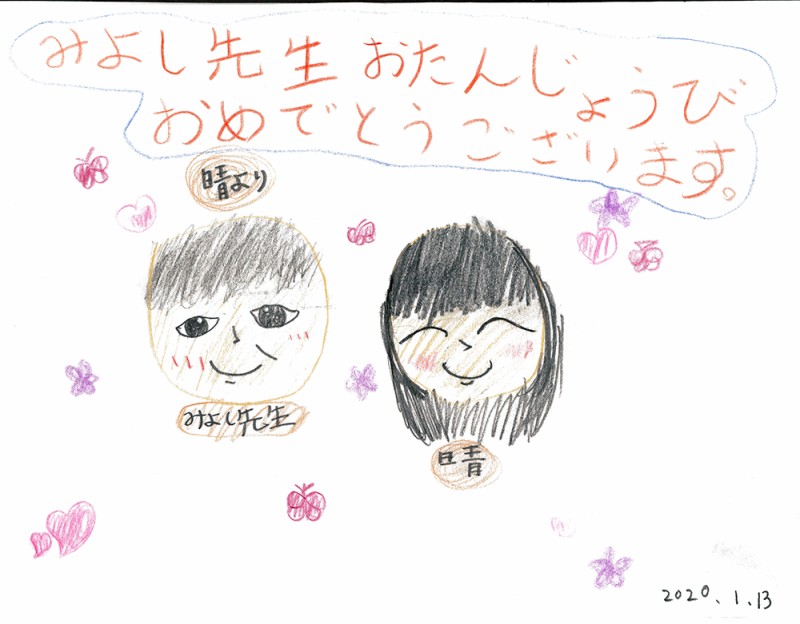 みよし先生 おたんじょうび
おめでとうございます。
晴より
みよし先生
晴
2020.1.13